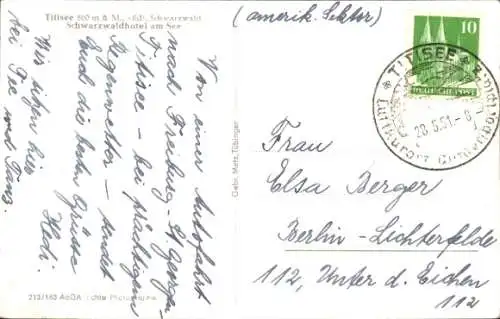 Titisee 860 m ü. M., südl. Schwarzwald
Schwarzwaldhotel am See
Von einer Autofahrt
nach Freiburg – St. Georgen –
Titisee – bei prächtigem
Regenwetter – sendet
Euch die besten Grüsse
Hedi.
Wir sitzen hier
bei Tee und Tanz.
213/183 AGDA Echte Photographie
Gebr. Metz, Tübingen
(amerik. Sektor)
10
DEUTSCHE POST
* TITISEE *
28.5.51.-8
Luftkurort
Frau
Elsa Berger
Berlin-Lichterfelde
112, Unter d. Eichen
112